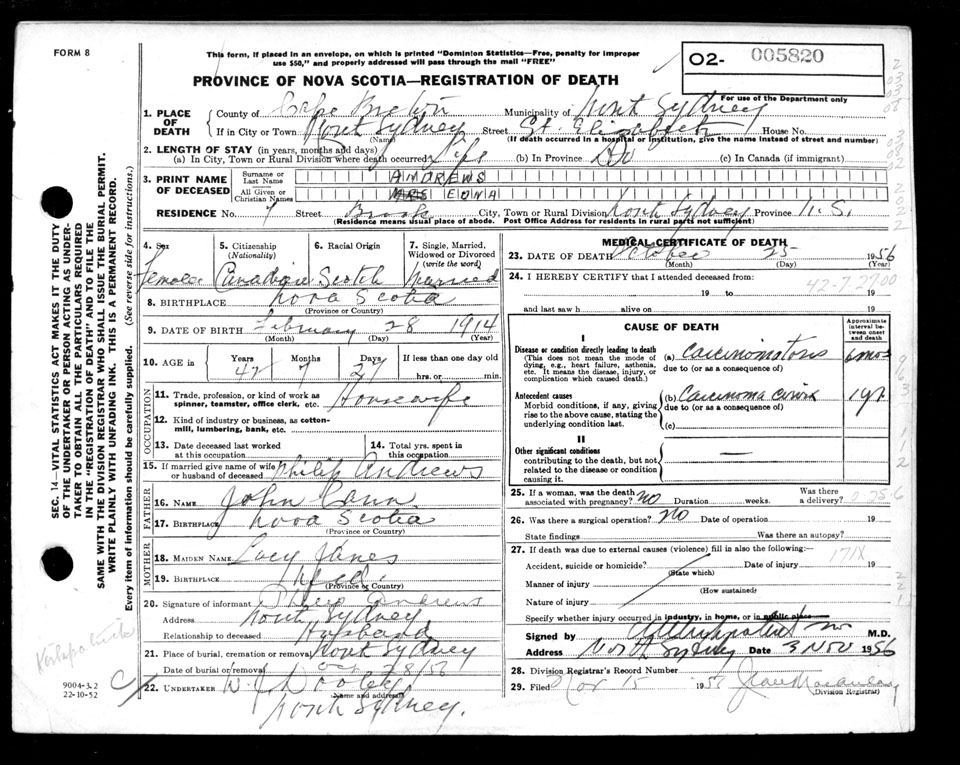 FORM 8
This form, if placed in an envelope, on which is printed "Dominion Statistics—Free, penalty for improper
use $50," and properly addressed will pass through the mail "FREE"
PROVINCE OF NOVA SCOTIA—REGISTRATION OF DEATH
02- 005820
For use of the Department only
1. PLACE OF DEATH
County of Cape Breton Municipality of North Sydney
If in City or Town North Sydney Street St. Elizabeth House No.
(Name) (If death occurred in a hospital or institution, give the name instead of street and number)
2. LENGTH OF STAY (in years, months and days)
(a) In City, Town or Rural Division where death occurred Life (b) In Province Do (c) In Canada (if immigrant)
3. PRINT NAME OF DECEASED
Surname or Last Name ANDREWS
All Given or Christian Names MRS EDNA
RESIDENCE No. 7 Street Brook City, Town or Rural Division North Sydney Province N.S.
(Residence means usual place of abode. Post Office Address for residents in rural parts not sufficient)
4. Sex Female
5. Citizenship (Nationality) Canadian
6. Racial Origin Scotch
7. Single, Married, Widowed or Divorced (write the word) Married
8. BIRTHPLACE Nova Scotia
(Province or Country)
9. DATE OF BIRTH February 28 1914
(Month) (Day) (Year)
10. AGE IN Years 42 Months 7 Days 27 If less than one day old
hrs. or min.
OCCUPATION
11. Trade, profession, or kind of work as spinner, teamster, office clerk, etc. Housewife
12. Kind of industry or business, as cotton-mill, lumbering, bank, etc.
13. Date deceased last worked at this occupation
14. Total yrs. spent in this occupation
15. If married give name of wife or husband of deceased Philip Andrews
FATHER
16. NAME John Cann
17. BIRTHPLACE Nova Scotia
(Province or Country)
MOTHER
18. MAIDEN NAME Lucy Janes
19. BIRTHPLACE Nfld.
(Province or Country)
20. Signature of informant Philip Andrews
Address North Sydney
Relationship to deceased Husband
21. Place of burial, cremation or removal North Sydney
Date of burial or removal Oct 28/56
22. UNDERTAKER W. J. Dooley
(Name and address)
North Sydney.
MEDICAL CERTIFICATE OF DEATH
23. DATE OF DEATH October 25 1956
(Month) (Day) (Year)
24. I HEREBY CERTIFY that I attended deceased from:
19 to 19
and last saw h alive on 19
42-7.2700
CAUSE OF DEATH
Approximate interval between onset and death
I
Disease or condition directly leading to death
(This does not mean the mode of dying, e.g., heart failure, asthenia, etc. It means the disease, injury, or complication which caused death.)
(a) Carcinomatosis 6mos
due to (or as a consequence of)
Antecedent causes
Morbid conditions, if any, giving rise to the above cause, stating the underlying condition last.
(b) Carcinoma Cervix 1yr.
due to (or as a consequence of)
(c)
II
Other significant conditions
contributing to the death, but not related to the disease or condition causing it.
—
25. If a woman, was the death associated with pregnancy? No Duration weeks. Was there a delivery?
26. Was there a surgical operation? No Date of operation 19
State findings Was there an autopsy?
27. If death was due to external causes (violence) fill in also the following:—
171X
Accident, suicide or homicide? Date of injury 19
(State which)
Manner of injury
(How sustained)
Nature of injury
Specify whether injury occurred in industry, in home, or in public place
Signed by M.D.
Address North Sydney Date 5 Nov 1956
28. Division Registrar's Record Number
29. Filed Nov 15 195
(Division Registrar)
SEC. 14—VITAL STATISTICS ACT MAKES IT THE DUTY
OF THE UNDERTAKER OR PERSON ACTING AS UNDER-
TAKER TO OBTAIN ALL THE PARTICULARS REQUIRED
IN THE "REGISTRATION OF DEATH" AND TO FILE THE
SAME WITH THE DIVISION REGISTRAR WHO SHALL ISSUE THE BURIAL PERMIT.
WRITE PLAINLY WITH UNFADING INK. THIS IS A PERMANENT RECORD.
Every item of information should be carefully supplied. (See reverse side for instructions.)
9004-3.2
22-10-52